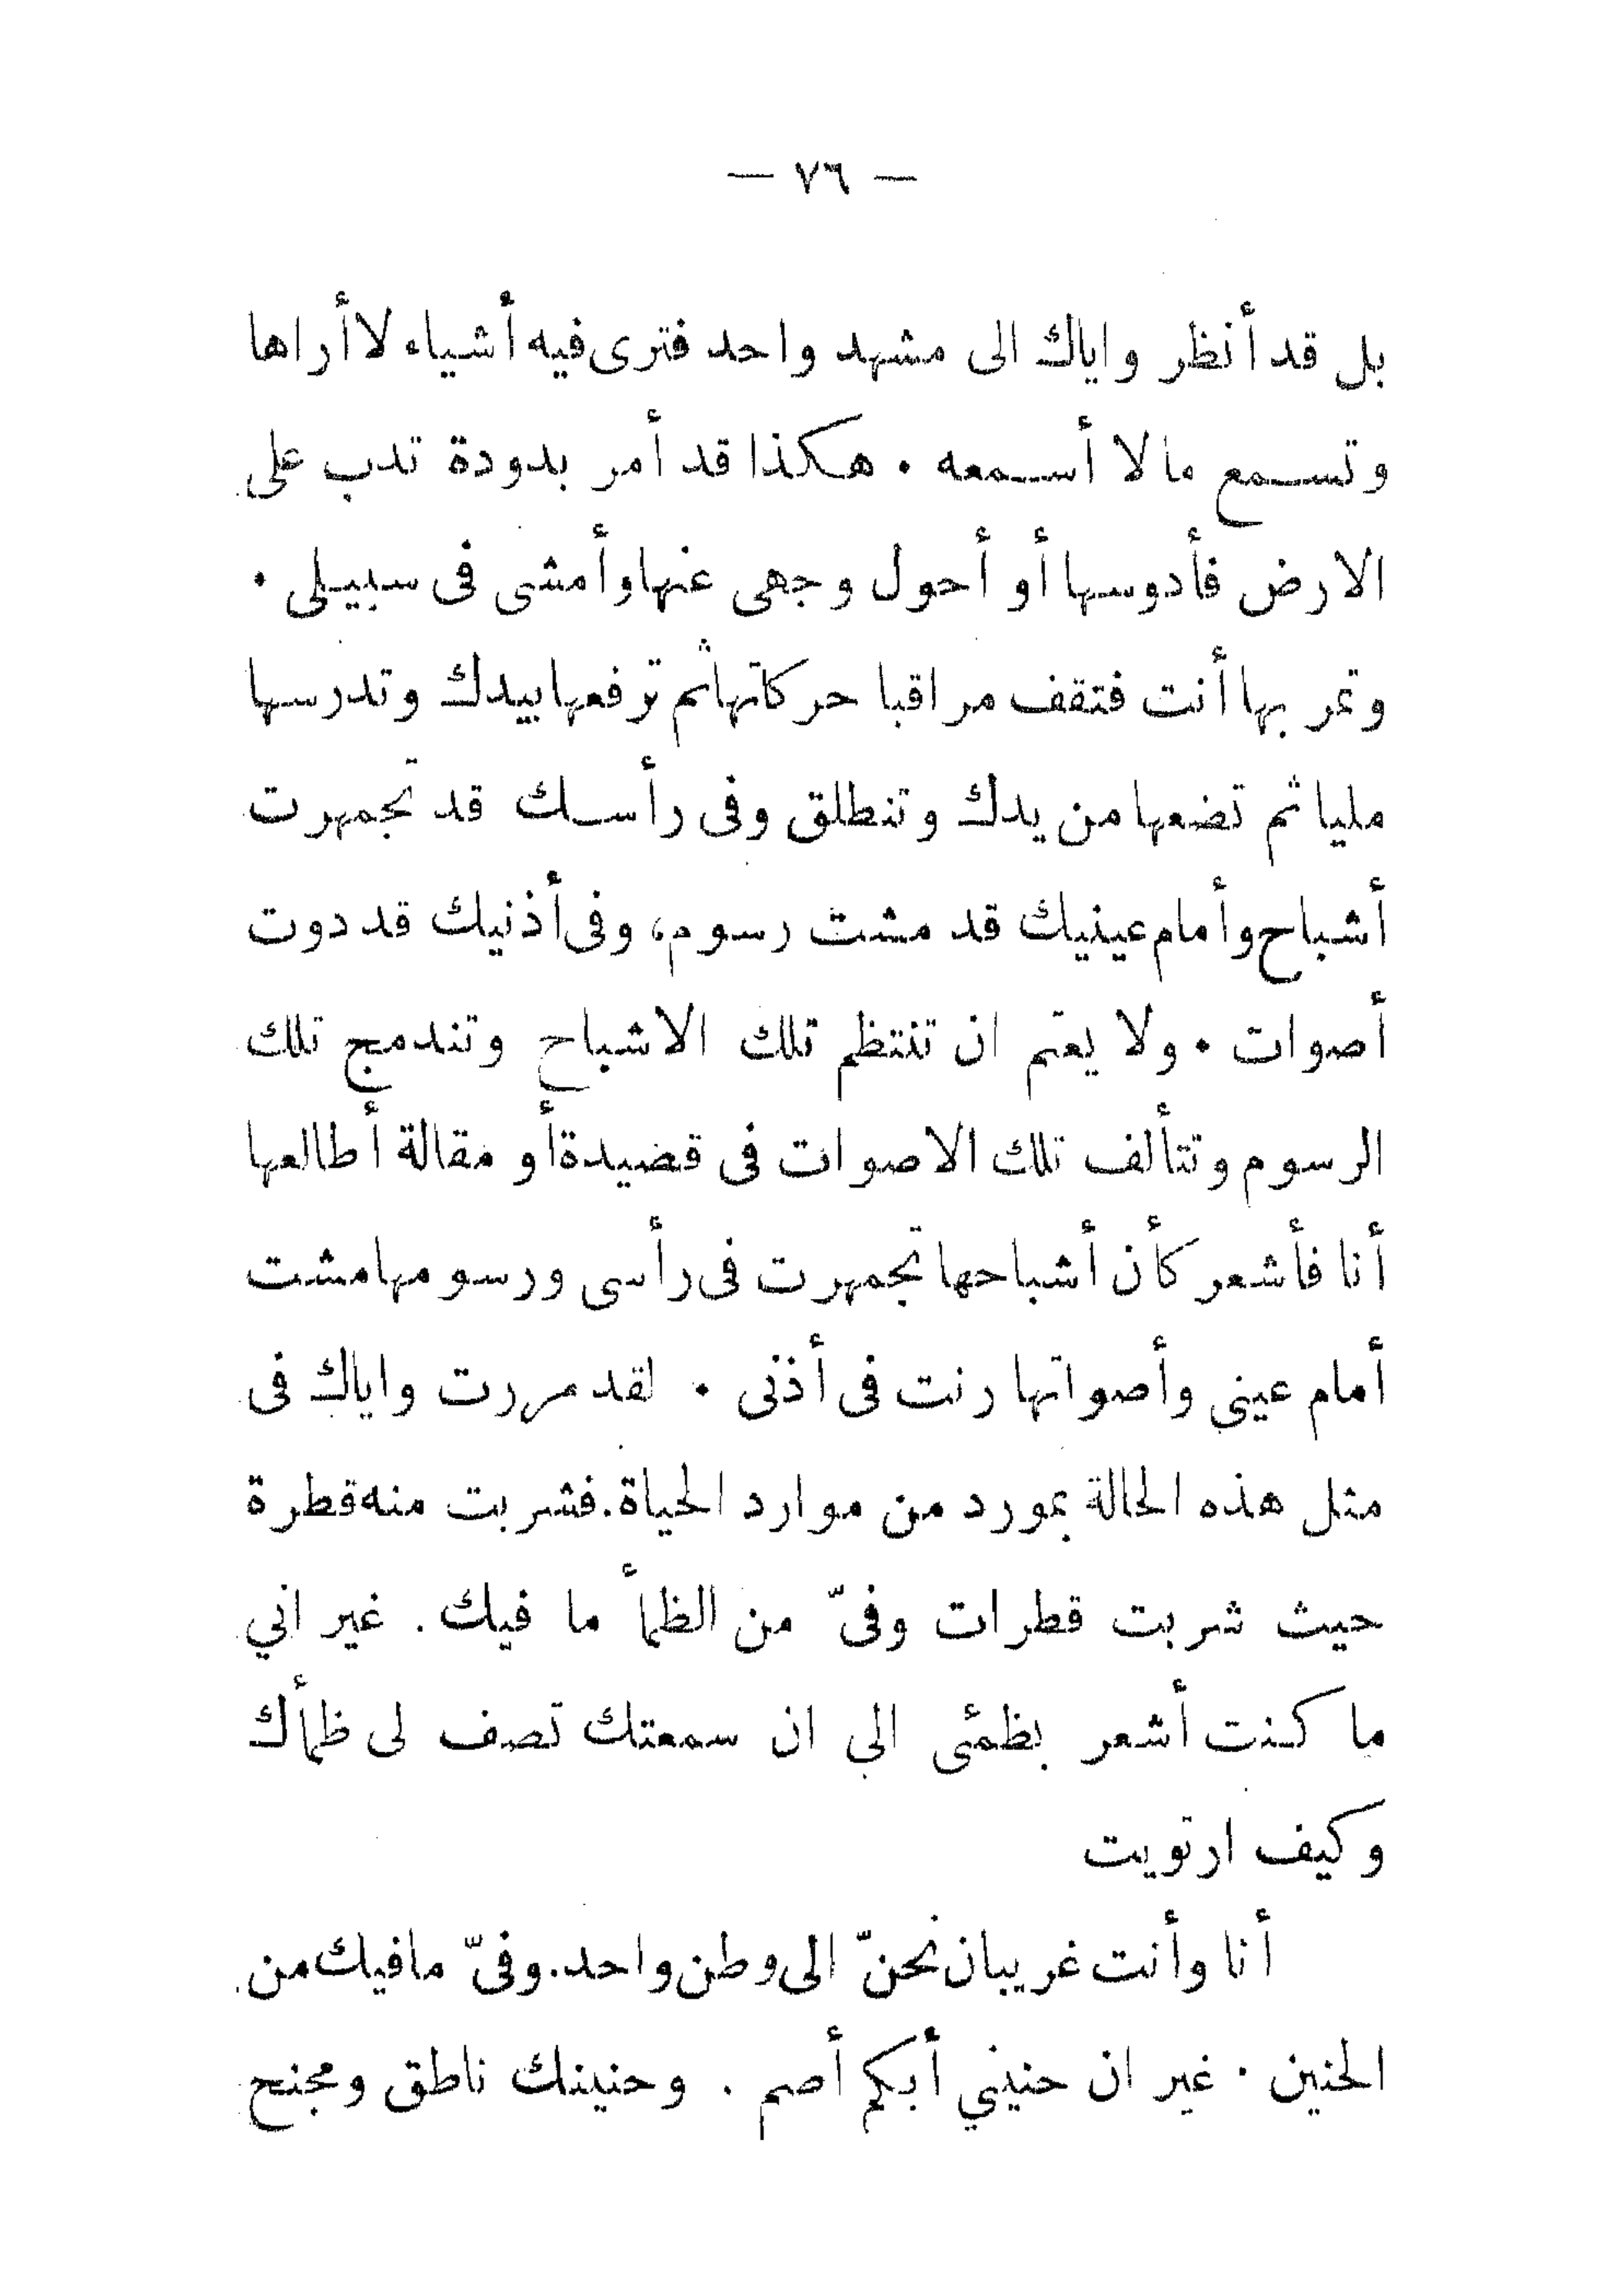 — ٧٦ —
بل قد أنظر واياك الى مشهد واحد فترى فيه أشياء لا أراها
وتسمع ما لا أسمعه . هكذا قد أمر بدودة تدب على
الارض فأدوسها أو أحول وجهى عنها وأمشى فى سبيلى .
وتمر بها أنت فتقف مراقبا حركاتها ثم ترفعها بيدك وتدرسها
مليا ثم تضعها من يدك وتنطلق وفى رأسك قد تجمهرت
أشباح وأمام عينيك قد مشت رسوم، وفى أذنيك قد دوت
أصوات . ولا يعتم ان تنتظم تلك الاشباح وتندمج تلك
الرسوم وتتألف تلك الاصوات فى قضيدة أو مقالة أطالعها
أنا فأشعر كأن أشباحها تجمهرت فى رأسى ورسومها مشت
أمام عينى وأصواتها رنت فى أذنى . لقد مررت واياك فى
مثل هذه الحالة بمورد من موارد الحياة. فشربت منه قطرة
حيث شربت قطرات وفىّ من الظمأ ما فيك . غير اني
ما كنت أشعر بظمئى الى ان سمعتك تصف لى ظمأك
وكيف ارتويت
أنا وأنت غريبان نحنّ الى وطن واحد. وفىّ مافيك من
الحنين . غير ان حنيني أبكم أصم . وحنينك ناطق ومجنح